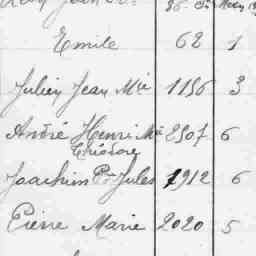 Emile 62 1
Julien Jean Mie 1156 3
André Henri Mie 2507 6
Théodore
Joachim Pre Jules 1912 6
Pierre Marie 2020 5